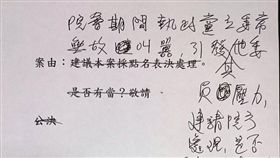 院會期間執政黨立委常
無故叫囂，引發他委
其
案由：建議本案採點名表決處理。
員壓力，
是否有當？敬請
建請院方
公決
處理，是否